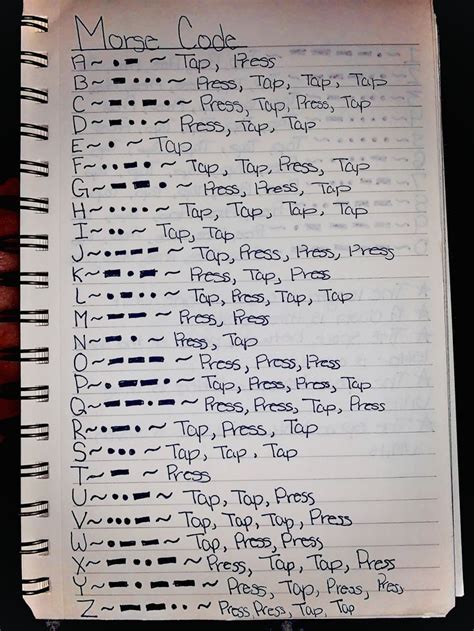 Morse Code
A~•−~ Tap, Press
B~−•••~ Press, Tap, Tap, Tap
C~−•−•~ Press, Tap, Press, Tap
D~−••~ Press, Tap, Tap
E~•~ Tap
F~••−•~ Tap, Tap, Press, Tap
G~−−•~ Press, Press, Tap
H~••••~ Tap, Tap, Tap, Tap
I~••~ Tap, Tap
J~•−−−~ Tap, Press, Press, Press
K~−•−~ Press, Tap, Press
L~•−••~ Tap, Press, Tap, Tap
M~−−~ Press, Press
N~−•~ Press, Tap
O~−−−~ Press, Press, Press
P~•−−•~ Tap, Press, Press, Tap
Q~−−•−~ Press, Press, Tap, Press
R~•−•~ Tap, Press, Tap
S~•••~ Tap, Tap, Tap
T~−~ Press
U~••−~ Tap, Tap, Press
V~•••−~ Tap, Tap, Tap, Press
W~•−−~ Tap, Press, Press
X~−••−~ Press, Tap, Tap, Press
Y~−•−−~ Press, Tap, Press, Press
Z~−−••~ Press, Press, Tap, Tap